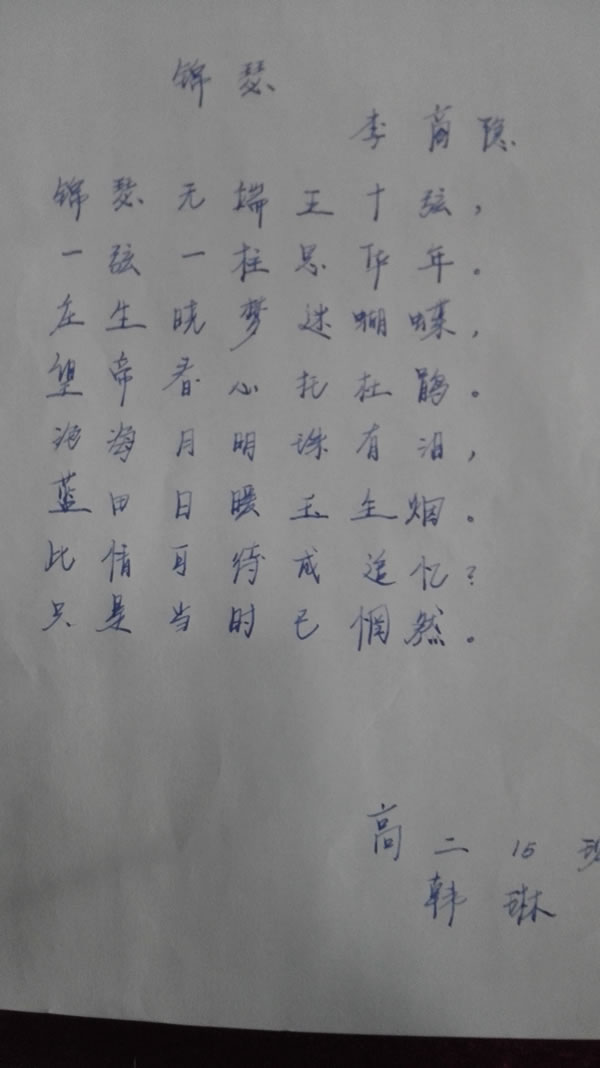 锦瑟
李商隐
锦瑟无端五十弦，
一弦一柱思华年。
庄生晓梦迷蝴蝶，
望帝春心托杜鹃。
沧海月明珠有泪，
蓝田日暖玉生烟。
此情可待成追忆？
只是当时已惘然。
高二15班
韩琳